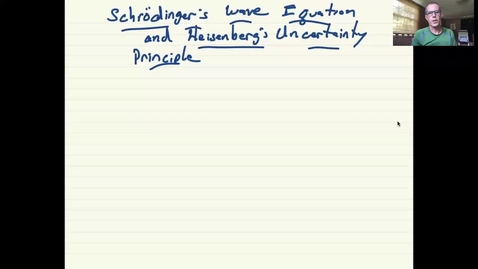 Schrödinger's Wave Equation
and Heisenberg's Uncertainty
Principle